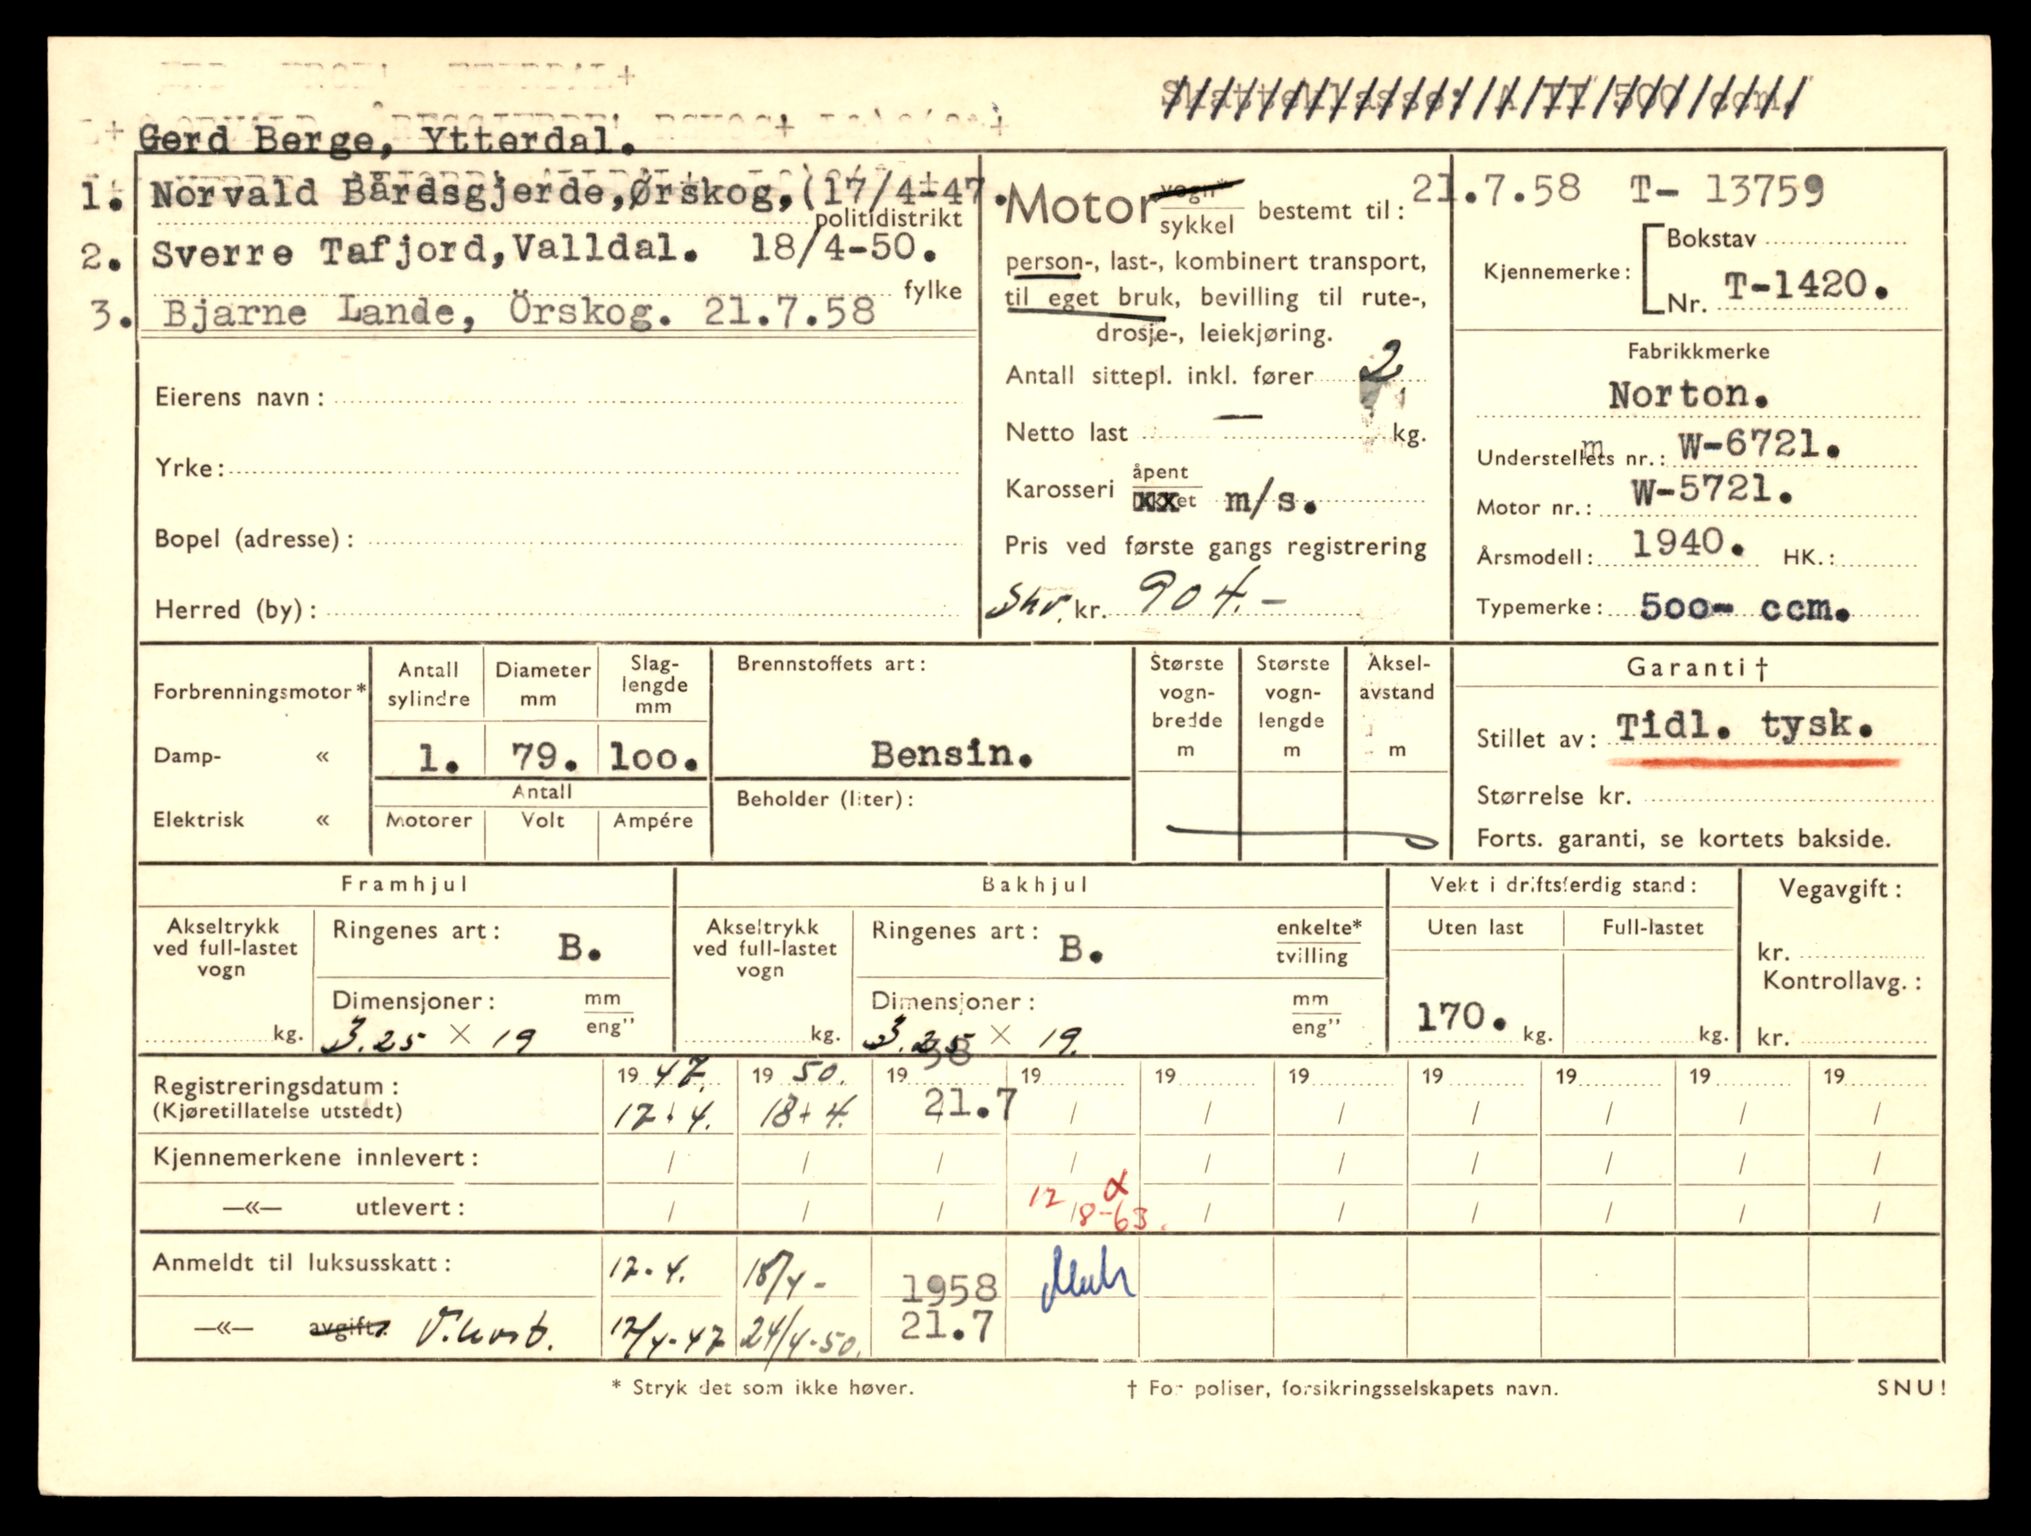 Skatteklasse: A II 500 ccm.
Gerd Berge, Ytterdal.
1. Norvald Bårdsgjerde,Ørskog,(17/4-47.
politidistrikt
2. Sverre Tafjord,Valldal. 18/4-50.
fylke
3. Bjarne Lande, Örskog. 21.7.58
Eierens navn:
Yrke:
Bopel (adresse):
Herred (by):
Motor vogn*
sykkel bestemt til:
person-, last-, kombinert transport,
til eget bruk, bevilling til rute-,
drosje-, leiekjøring.
Antall sittepl. inkl. fører 2
Netto last — kg.
Karosseri åpent
xx m/s.
Pris ved første gangs registrering
Skr. kr. 904.-
21.7.58 T- 13759
Kjennemerke: Bokstav
Nr. T-1420.
Fabrikkmerke
Norton.
Understellets nr.: W-6721.
Motor nr.: W-5721.
Årsmodell: 1940. HK.:
Typemerke: 500- ccm.
Forbrenningsmotor*
Damp- «
Elektrisk «
Antall sylindre
1.
Diameter mm
79.
Slag-lengde mm
100.
Antall
Motorer Volt Ampére
Brennstoffets art:
Bensin.
Beholder (liter):
Største vogn-bredde m
Største vogn-lengde m
Aksel-avstand m
Garanti†
Stillet av: Tidl. tysk.
Størrelse kr.
Forts. garanti, se kortets bakside.
Framhjul
Akseltrykk ved full-lastet vogn
kg.
Ringenes art: B.
Dimensjoner: mm
eng”
3.25 × 19
Bakhjul
Akseltrykk ved full-lastet vogn
kg.
Ringenes art: B. enkelte*
tvilling
Dimensjoner: mm
eng”
3.25 × 19.
Vekt i driftsferdig stand:
Uten last Full-lastet
170. kg. kg.
Vegavgift:
kr.
Kontrollavg.:
kr.
Registreringsdatum: 19 47. 19 50. 19 58 19 19 19 19 19 19 19
(Kjøretillatelse utstedt) 17/4. 18/4. 21.7 / / / / / / /
Kjennemerkene innlevert: / / / / / / / / / /
—«— utlevert: / / / 12/8-63. / / / / / /
Anmeldt til luksusskatt: 17-4. 18/4- 1958
—«— avgift: 17/4-47 24/4-50. 21.7
* Stryk det som ikke høver.
† For poliser, forsikringsselskapets navn.
SNU!